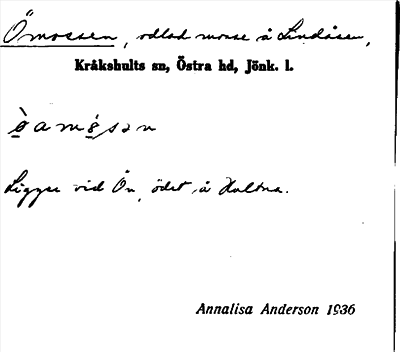 Ömossen, odlad mosse å Lindåsen,
Kråkshults sn, Östra hd, Jönk. l.
Ligger vid Ön, ödet å Hultna.
Annalisa Anderson 1936